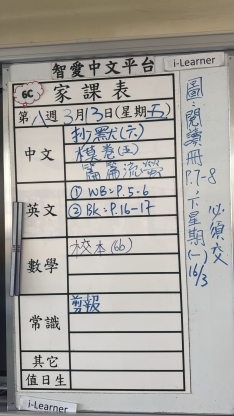 i-Learner
智愛中文平台
6C
家課表
第八週3月13日(星期五)
中文
抄默(六)
模卷(五)
篇篇流螢
英文
① WB:P.5-6
② Bk:P.16-17
數學
校本(6b)
常識
剪報
其它
值日生
圖:閱讀冊
P.7-8
,下星期(一)
16/3
必須交
i-Learner